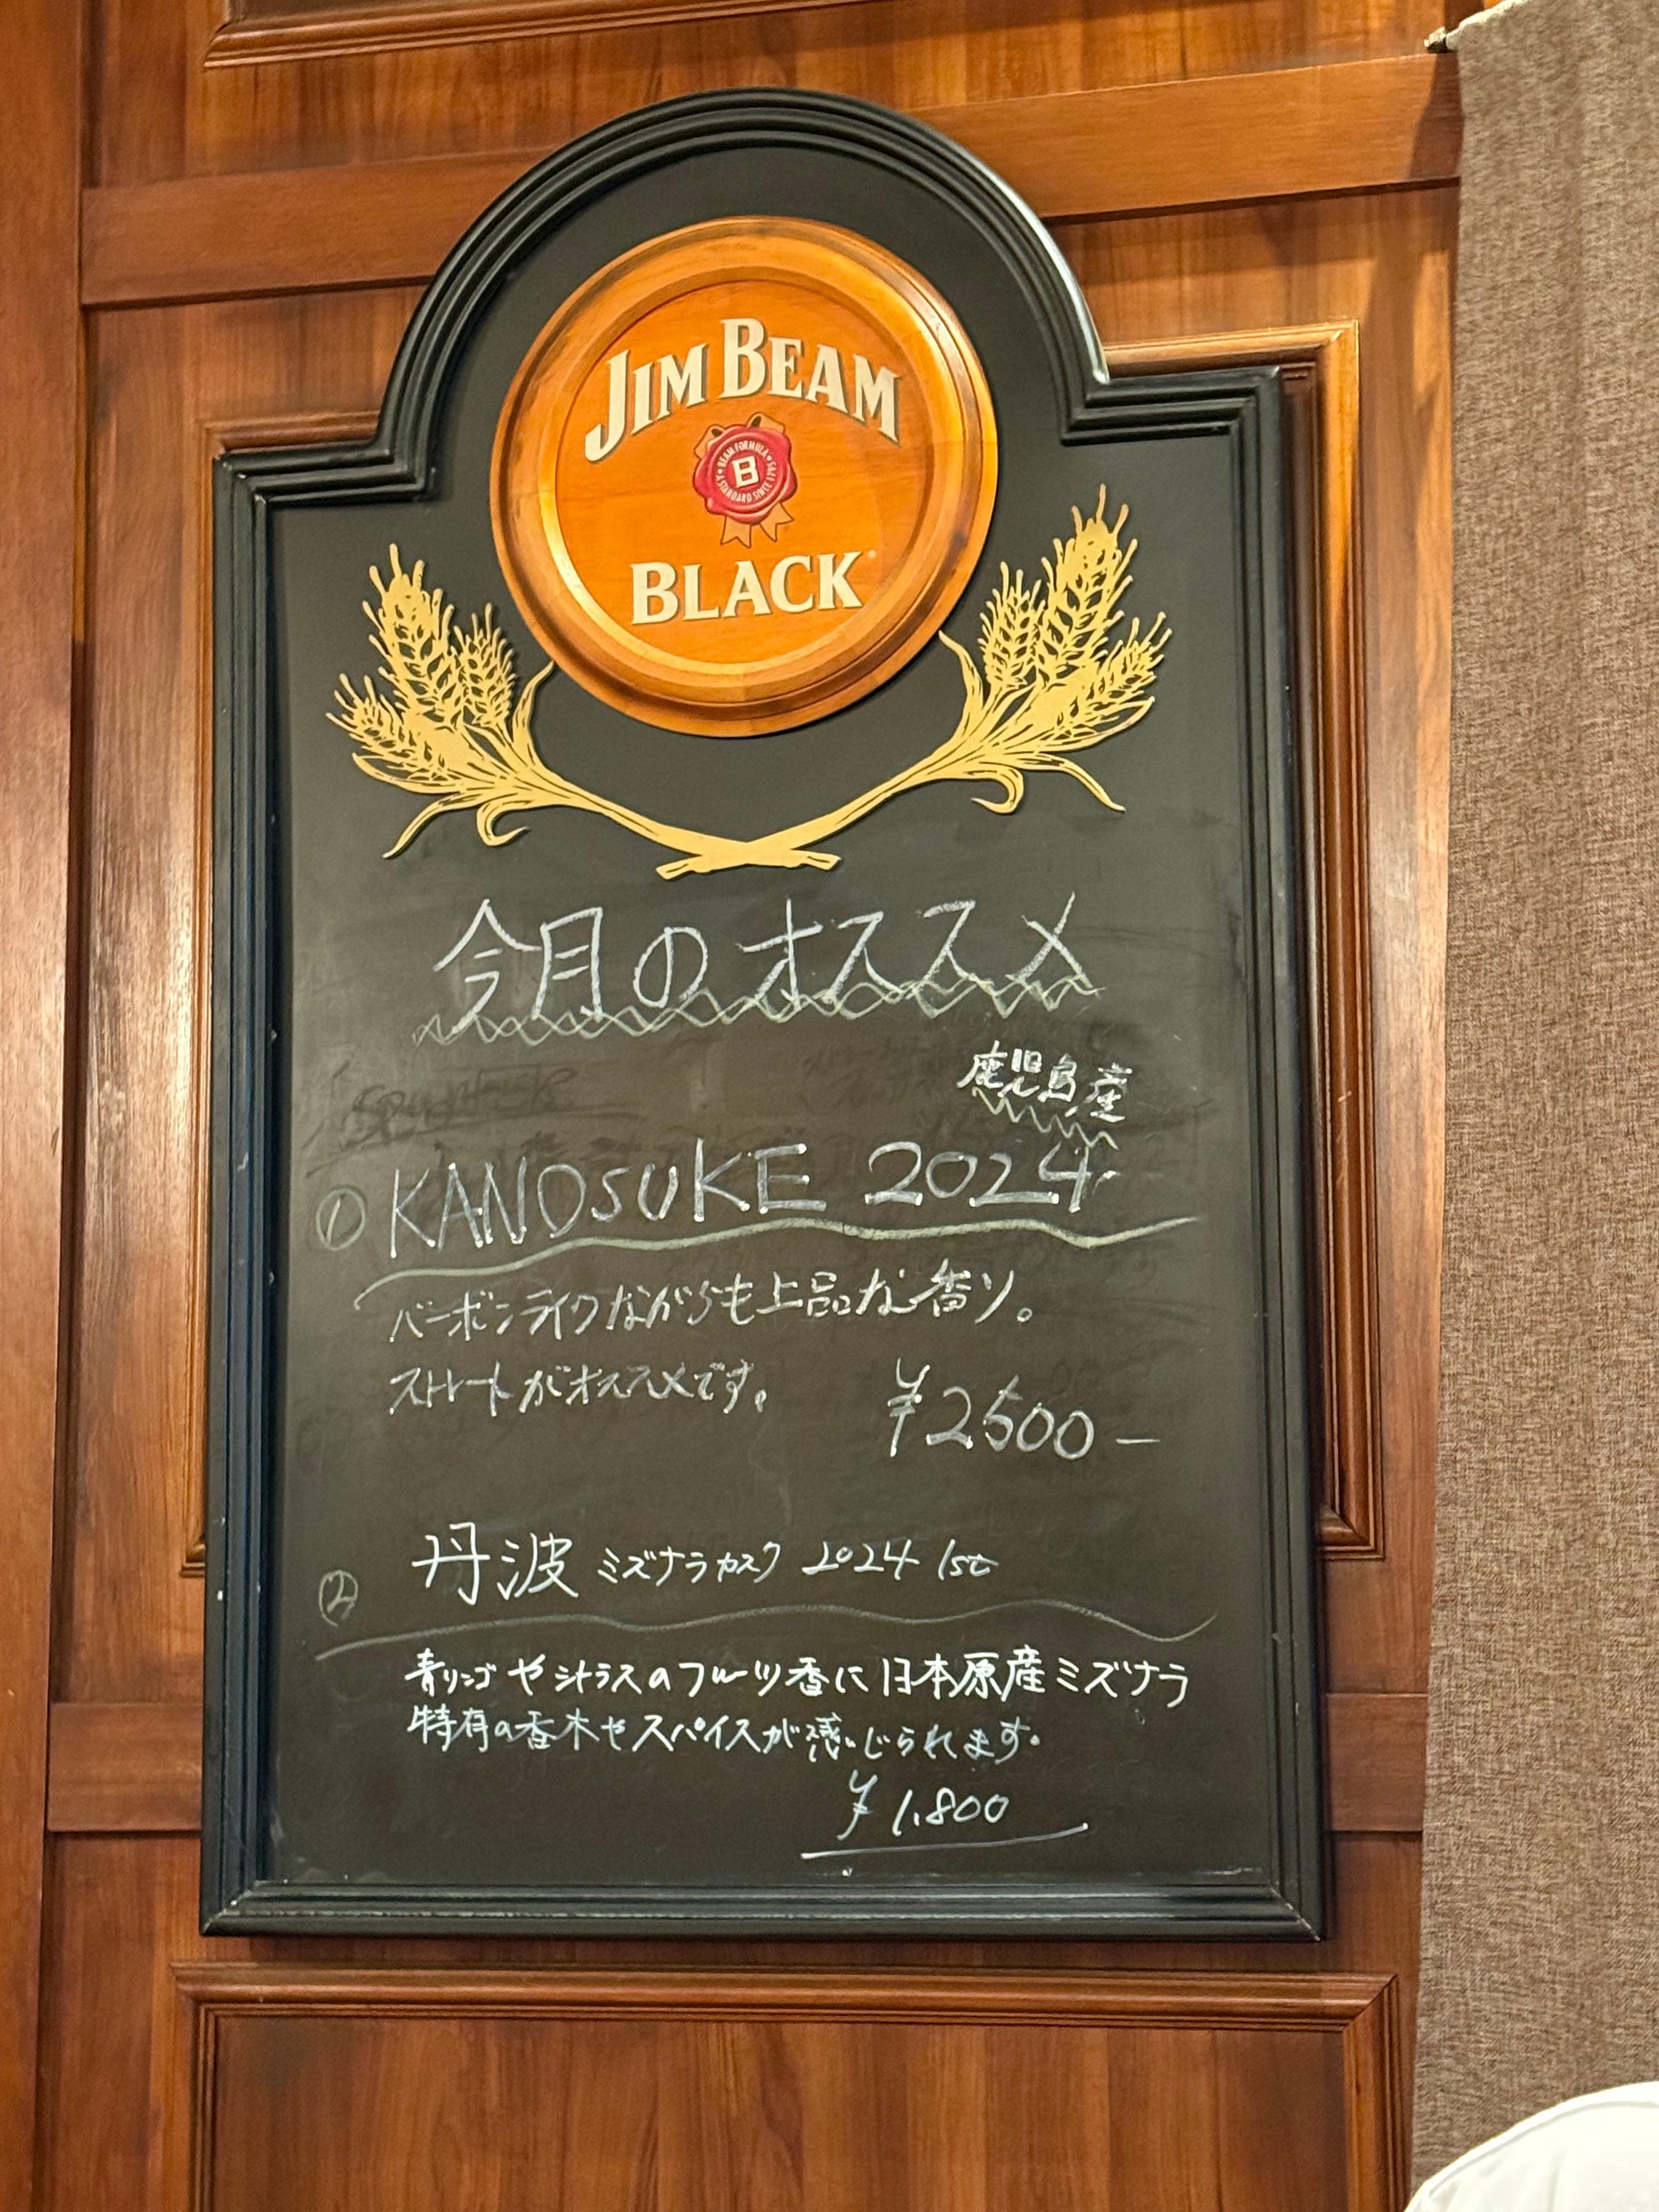 JIM BEAM
BEAM FORMULA
B
A STANDARD SINCE 1795
BLACK
今月のオススメ
鹿児島産
① KANOSUKE 2024
バーボンライクながらも上品な香り。
ストレートがオススメです。
¥2500-
② 丹波 ミズナラカスク 2024 1st
青リンゴやシトラスのフルーツ香に日本原産ミズナラ
特有の香木やスパイスが感じられます。
¥1,800